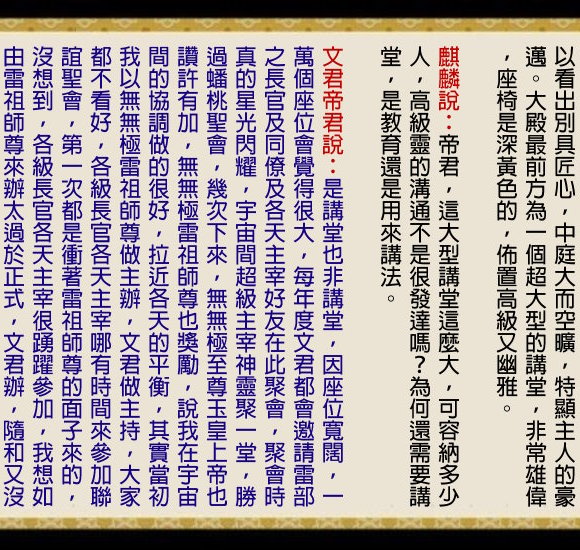 以看出別具匠心，中庭大而空曠，特顯主人的豪
邁。大殿最前方為一個超大型的講堂，非常雄偉
，座椅是深黃色的，佈置高級又幽雅。
麒麟說：帝君，這大型講堂這麼大，可容納多少
人，高級靈的溝通不是很發達嗎？為何還需要講
堂，是教育還是用來講法。
文君帝君說：是講堂也非講堂，因座位寬闊，一
萬個座位會覺得很大，每年度文君都會邀請雷部
之長官及同僚及各天主宰好友在此聚會，聚會時
真的星光閃耀，宇宙間超級主宰神靈聚一堂，勝
過蟠桃聖會，幾次下來，無無極至尊玉皇上帝也
讚許有加，無無極雷祖師尊也獎勵，說我在宇宙
間的協調做的很好，拉近各天的平衡，其實當初
我以無無極雷祖師尊做主辦，文君做主持，大家
都不看好，各級長官各天主宰哪有時間來參加聯
誼聖會，第一次都是衝著雷祖師尊的面子來的，
沒想到，各級長官各天主宰很踴躍參加，我想如
由雷祖師尊來辦太過於正式，文君辦，隨和又沒